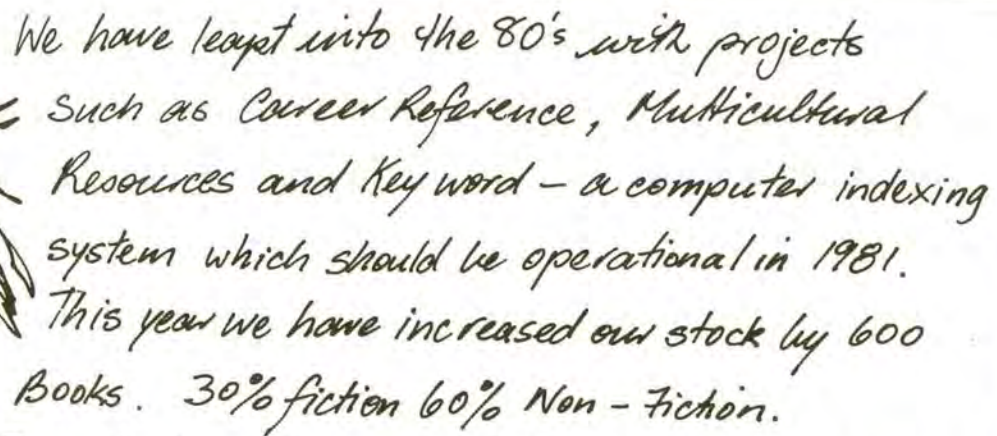 We have leapt into the 80's with projects
such as Career Reference, Multicultural
Resources and Key word - a computer indexing
system which should be operational in 1981.
This year we have increased our stock by 600
Books. 30% fiction 60% Non - Fiction.